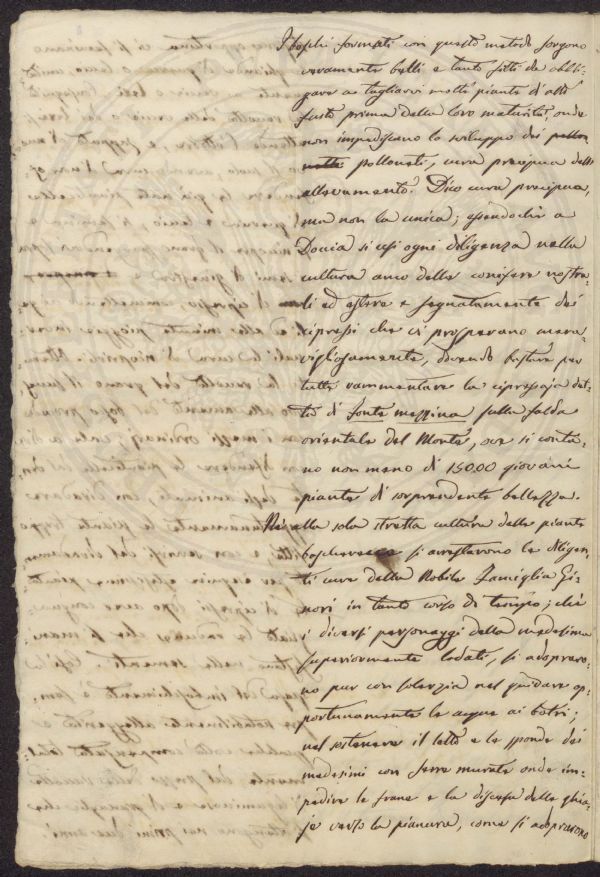 I boschi formati con questo metodo sorgono
veramente belli e tanto fitti da obbli-
gare a tagliarvi molte piante d'alto
fusto prima della loro maturità, onde
non impediscano lo sviluppo dei
pollonati, cura precipua dell'
allevamento. Dico cura precipua,
ma non la unica; essendochè a
Doccia si usi ogni diligenza nella
cultura anco delle conifere nostra-
li ed estere e segnatamente dei
cipressi che ci prosperano mara-
vigliosamente, dovendo bastare per
tutte rammentare la cipressaja det-
ta di Fonte mezzina sulla falda
orientale del Monte, ove si conta-
no non meno di 15000 giovani
piante di sorprendente bellezza.
Nè alla sola stretta cultura delle piante
boscherecce si arrestarono le diligen-
ti cure della Nobile Famiglia Gi-
nori in tanto corso di tempo; chè
i diversi personaggi della medesima
superiormente lodati, si adoprara-
no pur con solerzia nel guidare op-
portunamente le acque ai botri;
nel sostenere il letto e le sponde dei
medesimi con serre murate onde im-
pedire le frane e la discesa delle ghia-
je verso la pianura, come si adoprarono